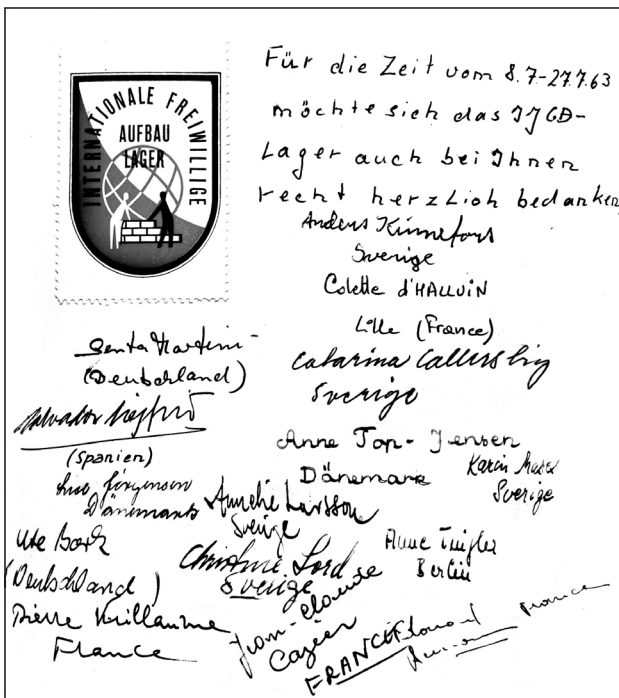 INTERNATIONALE FREIWILLIGE
AUFBAU
LAGER
Für die Zeit vom 8.7-27.7.63
möchte sich das IJGD-
Lager auch bei Ihnen
recht herzlich bedanken
Anders Kinnefors
Sverige
Colette d'HALLUIN
Lille (France)
Catarina
Sverige
Senta Martini
(Deutschland)
Salvador
(Spanien)
Anne Top-Jensen
Dänemark
Karin
Sverige
Jørgensen
Dänemark
Annelie Larsson
Sverige
Ute Bork
(Deutschland)
Christine Lord
Sverige
Anne
Berlin
Pierre
France
Jean-Claude
Cazier
FRANCE
France